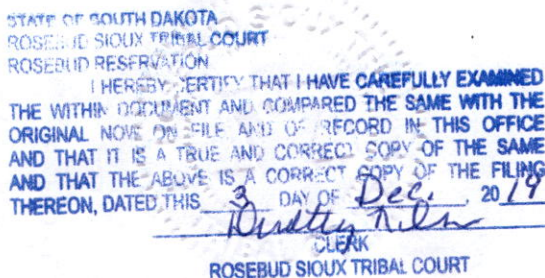 STATE OF SOUTH DAKOTA
ROSEBUD SIOUX TRIBAL COURT
ROSEBUD RESERVATION
I HEREBY CERTIFY THAT I HAVE CAREFULLY EXAMINED
THE WITHIN DOCUMENT AND COMPARED THE SAME WITH THE
ORIGINAL NOVE ON FILE AND OF RECORD IN THIS OFFICE
AND THAT IT IS A TRUE AND CORRECT COPY OF THE SAME
AND THAT THE ABOVE IS A CORRECT COPY OF THE FILING
THEREON, DATED THIS 3 DAY OF Dec. 2019
CLERK
ROSEBUD SIOUX TRIBAL COURT